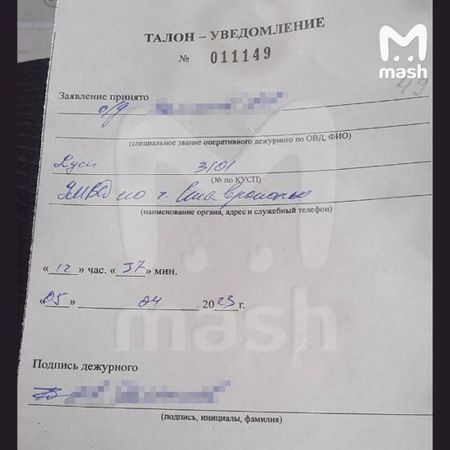 mash
ТАЛОН – УВЕДОМЛЕНИЕ
№ 011149
49
Заявление принято
о/д
(специальное звание оперативного дежурного по ОВД, ФИО)
Кусп 3101
(№ по КУСП)
УМВД по г. Ставрополю
(наименование органа, адрес и служебный телефон)
« 12 » час. « 37 » мин.
«05» 04 2023 г.
mash
Подпись дежурного
(подпись, инициалы, фамилия)